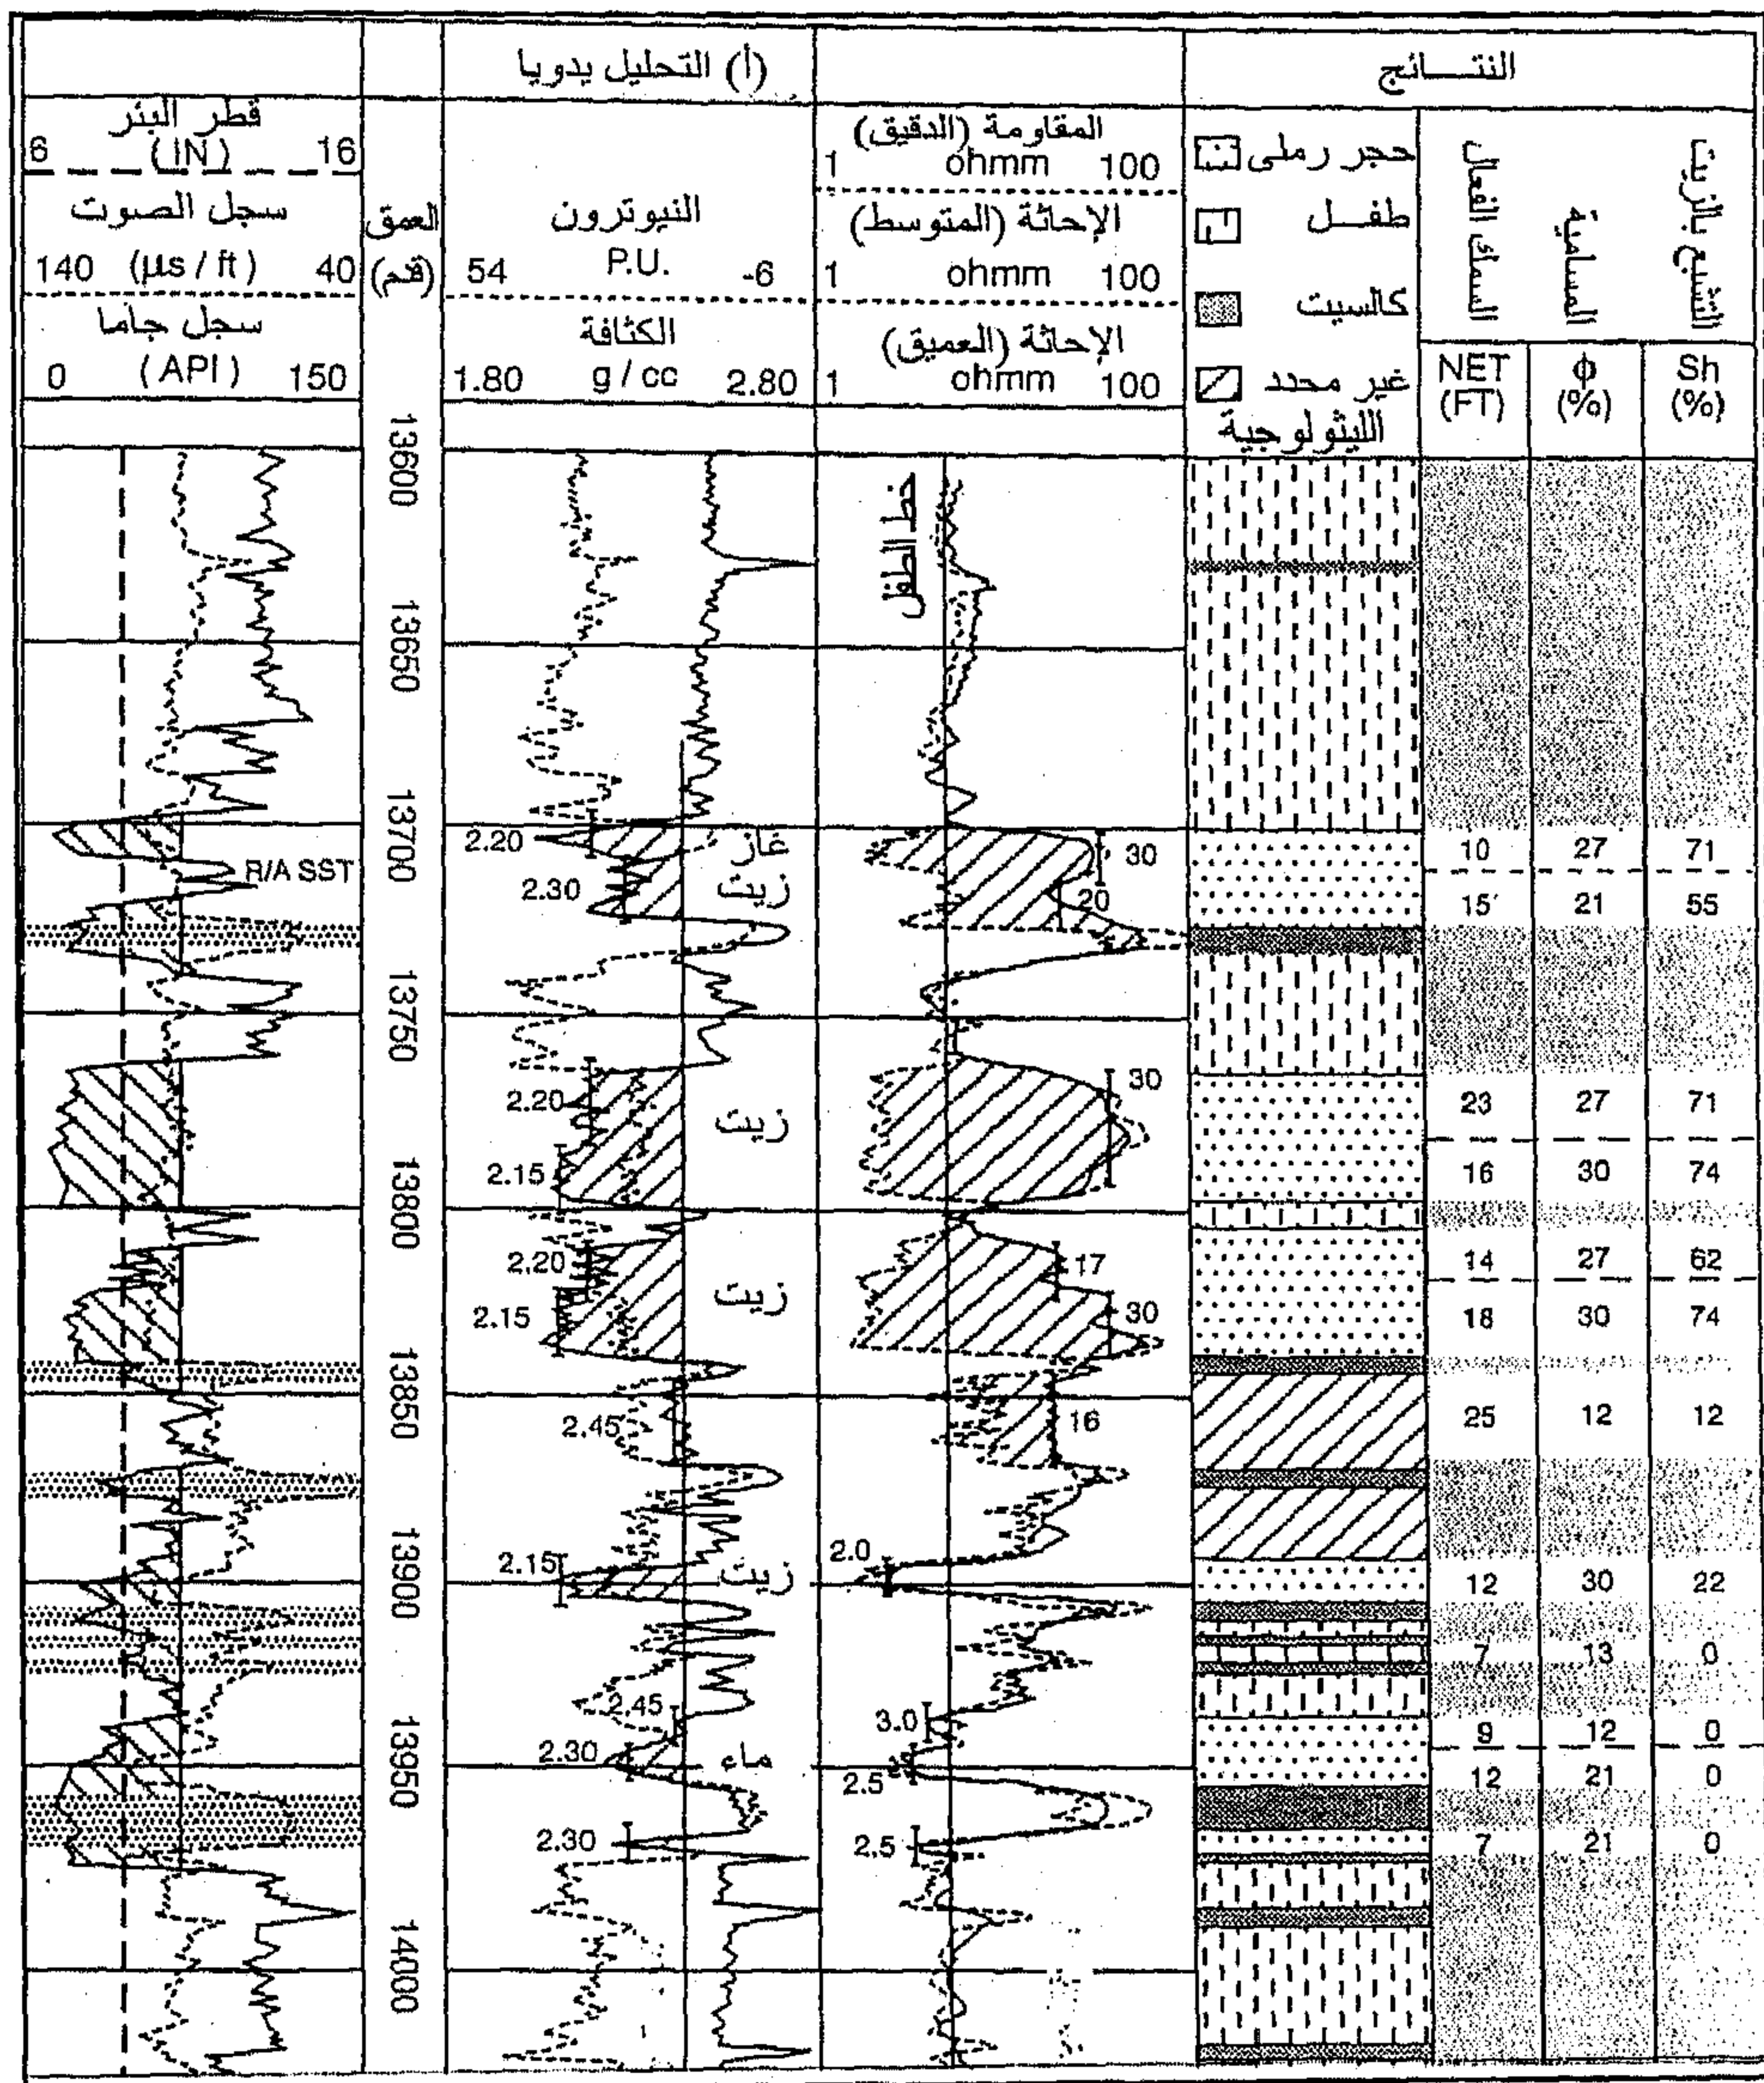 (أ) التحليل يدويا
النتـــــائج
قطر البئر
6 (IN) 16
سجل الصوت
140 (µs / ft) 40
سجل جاما
0 (API) 150
العمق
(قدم)
النيوترون
54 P.U. -6
الكثافة
1.80 g / cc 2.80
المقاومة (الدقيق)
1 ohmm 100
الإحاثة (المتوسط)
1 ohmm 100
الإحاثة (العميق)
1 ohmm 100
حجر رملى
طفـــل
كالسيت
غير محدد
الليثولوجية
السمك الفعال
NET
(FT)
المسامية
ϕ
(%)
التشبع بالزيت
Sh
(%)
13600
13650
13700
13750
13800
13850
13900
13950
14000
خط الطفل
R/A SST
2.20 غاز 30
2.30 زيت 20
2.20 زيت 30
2.15
2.20 زيت 17
2.15 30
2.45 16
2.15 زيت 2.0
2.45 3.0
2.30 ماء 2.5
2.30 2.5
10 27 71
15 21 55
23 27 71
16 30 74
14 27 62
18 30 74
25 12 12
12 30 22
7 13 0
9 12 0
12 21 0
7 21 0